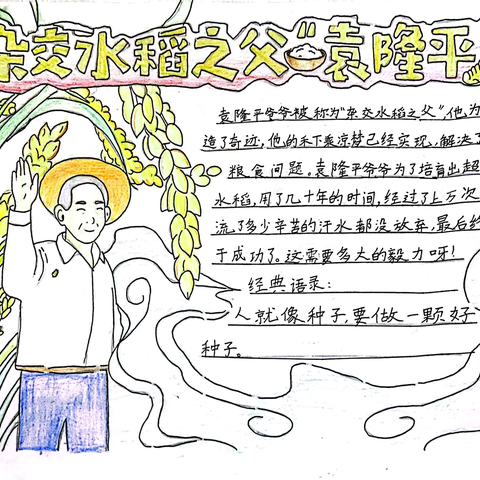 杂交水稻之父"袁隆平
袁隆平爷爷被称为"杂交水稻之父",他为
造了奇迹,他的禾下乘凉梦已经实现,解决了
粮食问题。袁隆平爷爷为了培育出超
水稻,用了几十年的时间,经过了上万次
流了多少辛苦的汗水都没放弃,最后终
于成功了。这需要多大的毅力呀!
经典语录:
人就像种子,要做一颗好
种子。